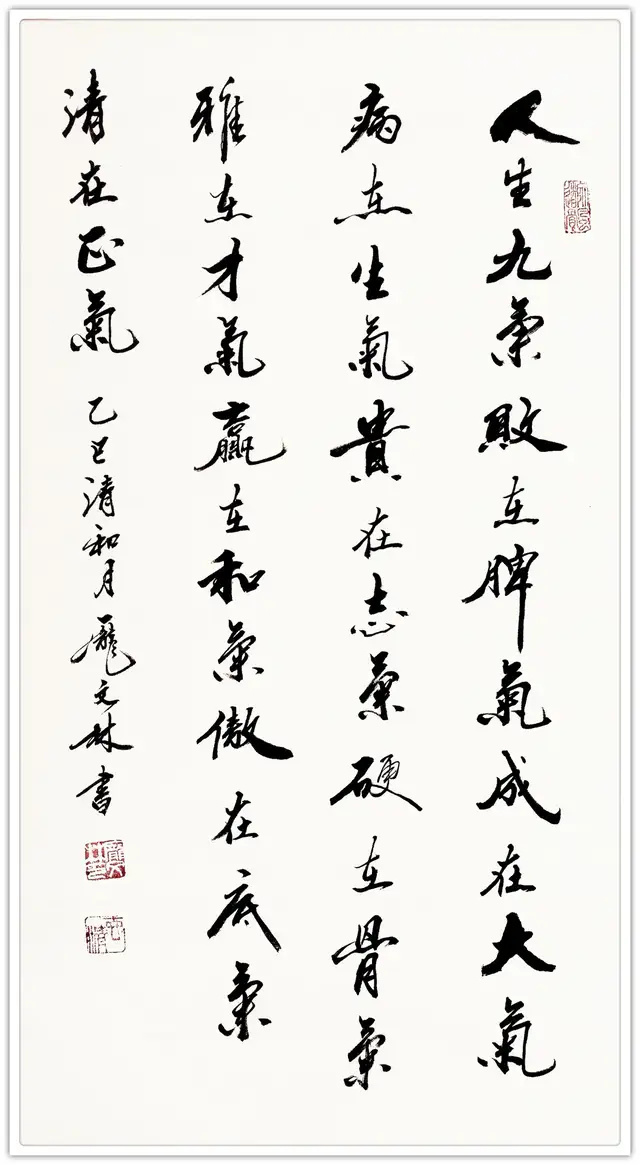 人生九氣敗在脾氣成在大氣
病在生氣貴在志氣硬在骨氣
雅在才氣贏在和氣傲在底氣
清在正氣
乙巳清和月龐文林書